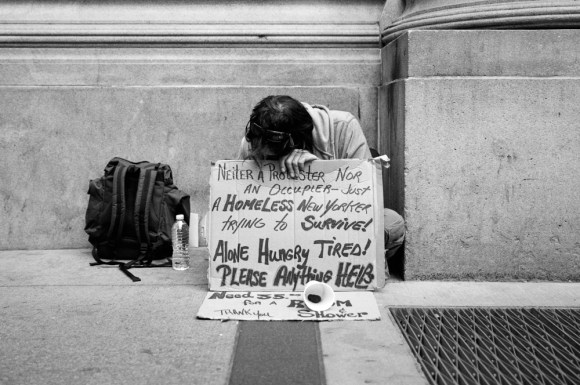 NEITER A PROTESTER NOR
AN OCCUPIER— JUST
A HOMELESS NEW YORKER
TRYING TO SURVIVE!
ALONE HUNGRY TIRED!
PLEASE ANYTHING HELPS
NEED 35.00
FOR A ROOM &
THANK YOU SHOWER